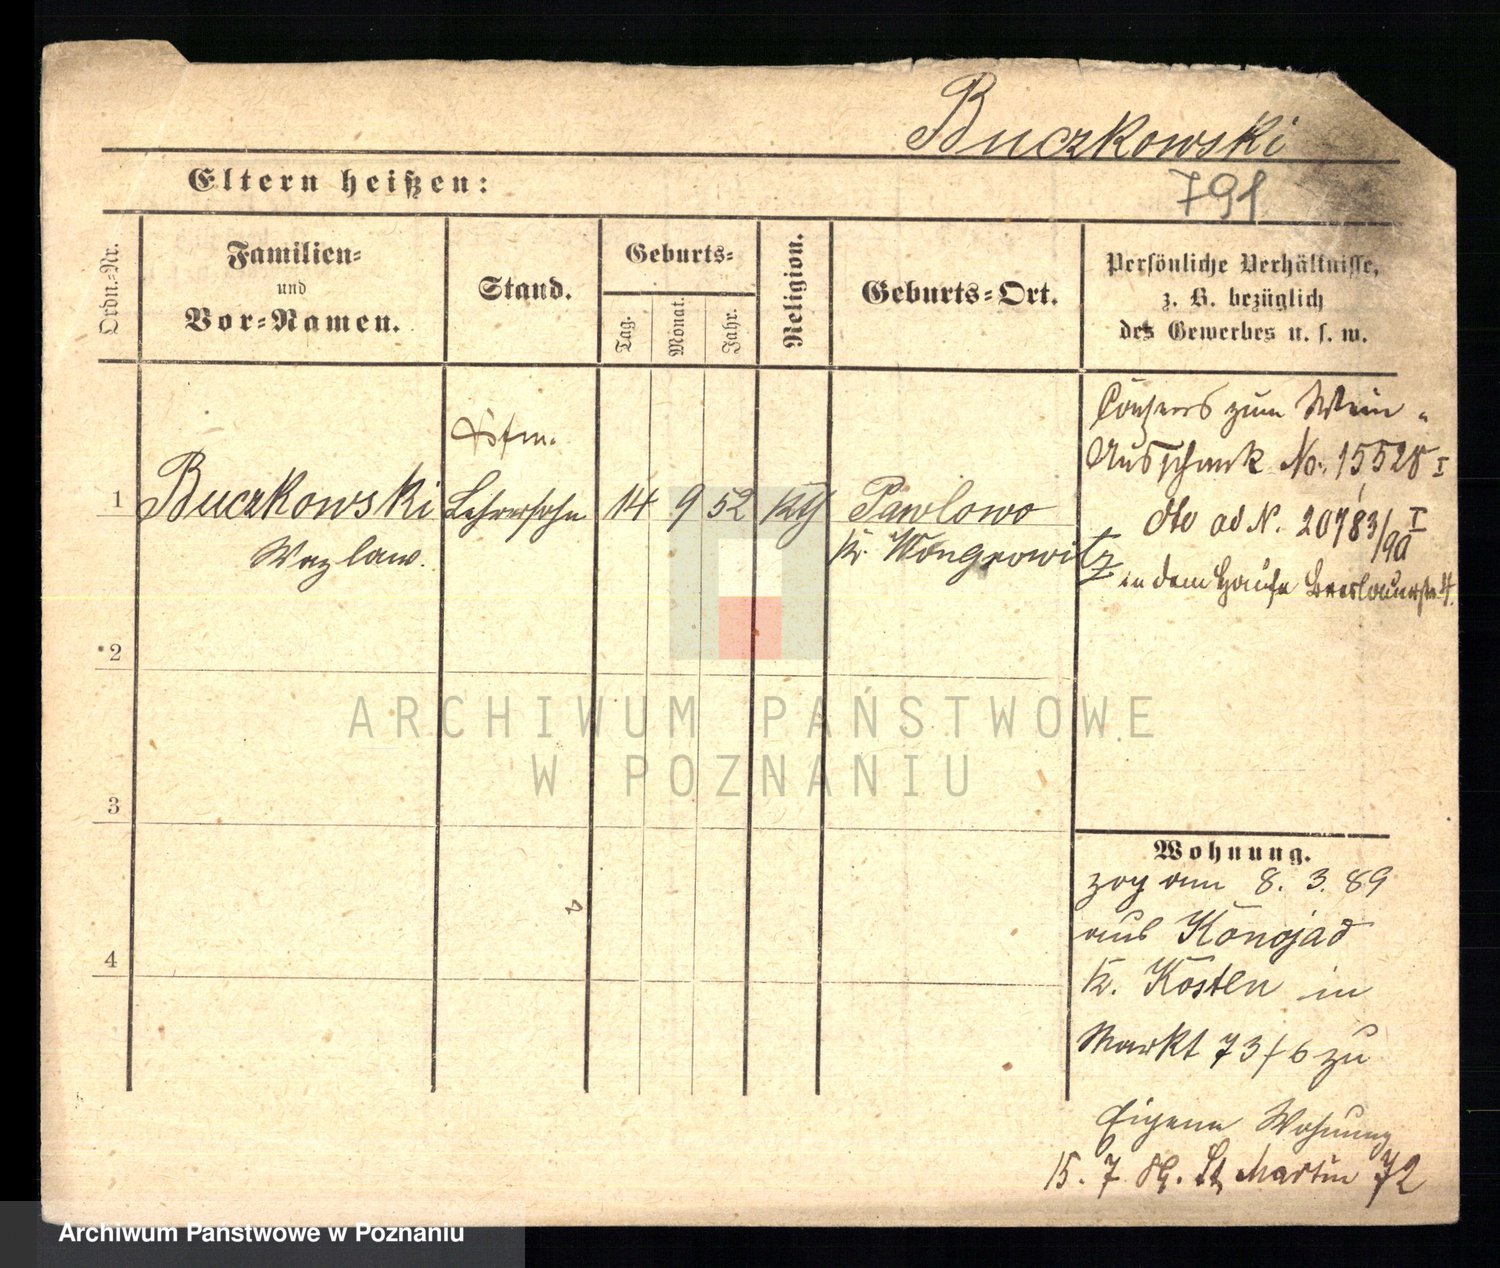 Buczkowski
Eltern heißen:
791
Ordn.-Nr.
Familien-
und
Vor-Namen.
Stand.
Geburts-
Tag.
Monat.
Jahr.
Religion.
Geburts-Ort.
Persönliche Verhältnisse,
z. B. bezüglich
des Gewerbes u. s. w.
1
Buczkowski
Wazlaw.
Lehrersohn
14
9
52
kth
Pawlowo
Kr. Wongrowitz
Consens zum Wein-
Ausschank No. 15528 I
dto ad N. 20783/90 I
in dem Hause Breslauerstr.
2
3
4
Wohnung.
zog am 8. 3. 89
aus Konojad
Kr. Kosten in
Markt 73/6 zu
Eigene Wohnung
15. 7. 89. St Martin 72
ARCHIWUM PAŃSTWOWE
W POZNANIU
Archiwum Państwowe w Poznaniu